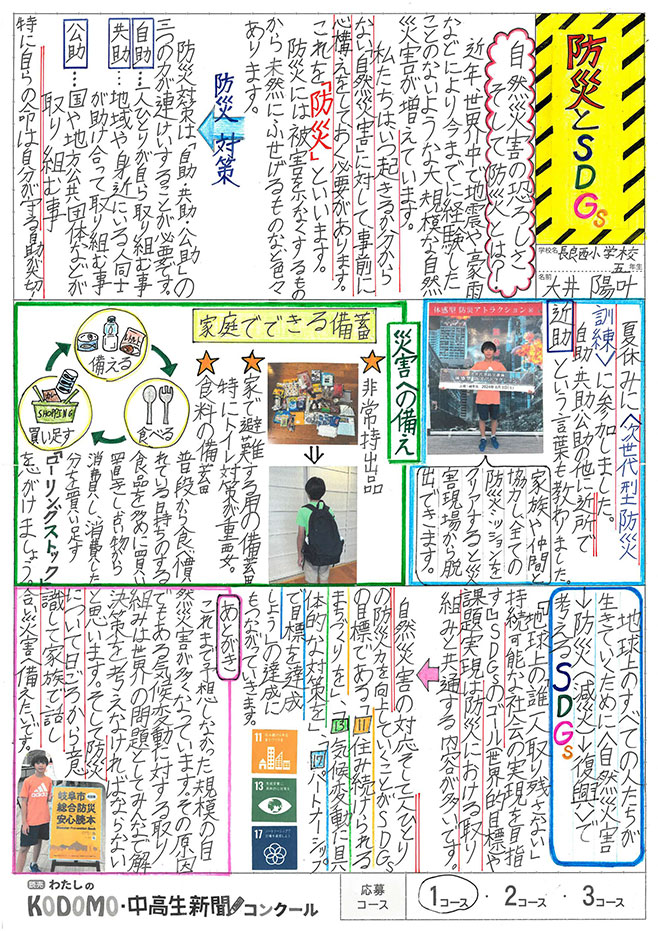 防災とSDGs
学校名 長良西小学校
五年生
名前 大井 陽叶
自然災害の恐ろしさ
そして防災とは?
近年、世界中で地震や豪雨
などにより今までに経験した
ことのないような大規模な自然
災害が増えています。
私たちはいつ起きるか分から
ない自然災害に対して、事前に
心構えをしておく必要があります。
これを「防災」といいます。
防災には被害を少なくするもの
から未然にふせげるものなど色々
あります。
防災対策
防災対策は「自助・共助・公助」の
三つの力が連けいすることが必要です。
自助…一人ひとりが自ら取り組む事
共助…地域や身近にいる人同士
が助け合って取り組む事
公助…国や地方公共団体などが
取り組む事
特に自らの命は自分が守る自助が大切!
夏休みに〈分世代型防災
訓練〉に参加しました。
自助・共助・公助の他に近所で
近助という言葉も教わりました。
体感型 防災アトラクション
家族や仲間と
協力し全ての
防災ミッションを
クリアすると災
害現場から脱
出できます。
災害への備え
家庭でできる備蓄
★非常持出品
★家で避難する用の備蓄
特にトイレ対策が重要。
★食料の備蓄
普段から食べ慣
れている日持ちのする
食品を多めに買い
置きし古い物から
消費し、消費した
分を買い足す
「ローリングストック」
を心がけましょう。
備える
食べる
買い足す
SHOPPING
地球上のすべての人たちが
生きていくために〈自然災害
→防災〈減災〉→復興〉で
考えるSDGs
「地球上の誰一人取り残さない」
持続可能な社会の実現を目指
すSDGsのゴール(世界的目標)や
課題・実現は防災における取り
組みと共通する内容が多いです。
自然災害の対応そして一人ひとり
の防災力を向上していくことがSDGs
の目標である「11住み続けられる
まちづくりを」「13気候変動に具
体的な対策を」「17パートナーシップ
で目標を達成
しよう」の達成に
もつながっていきます。
11
13
17
あとがき
これまで予想しなかった規模の自
然災害が多くなっています。その原因
でもある気候変動に対する取り
組みは世界の問題としてみんなで解
決策を考えなければならない
と思います。そして防災
について日ごろから意
識して家族で話し
合い災害に備えたいです。
岐阜市
総合防災
安心読本
読売 わたしの
KODOMO・中高生新聞コンクール
応募コース
1コース・2コース・3コース